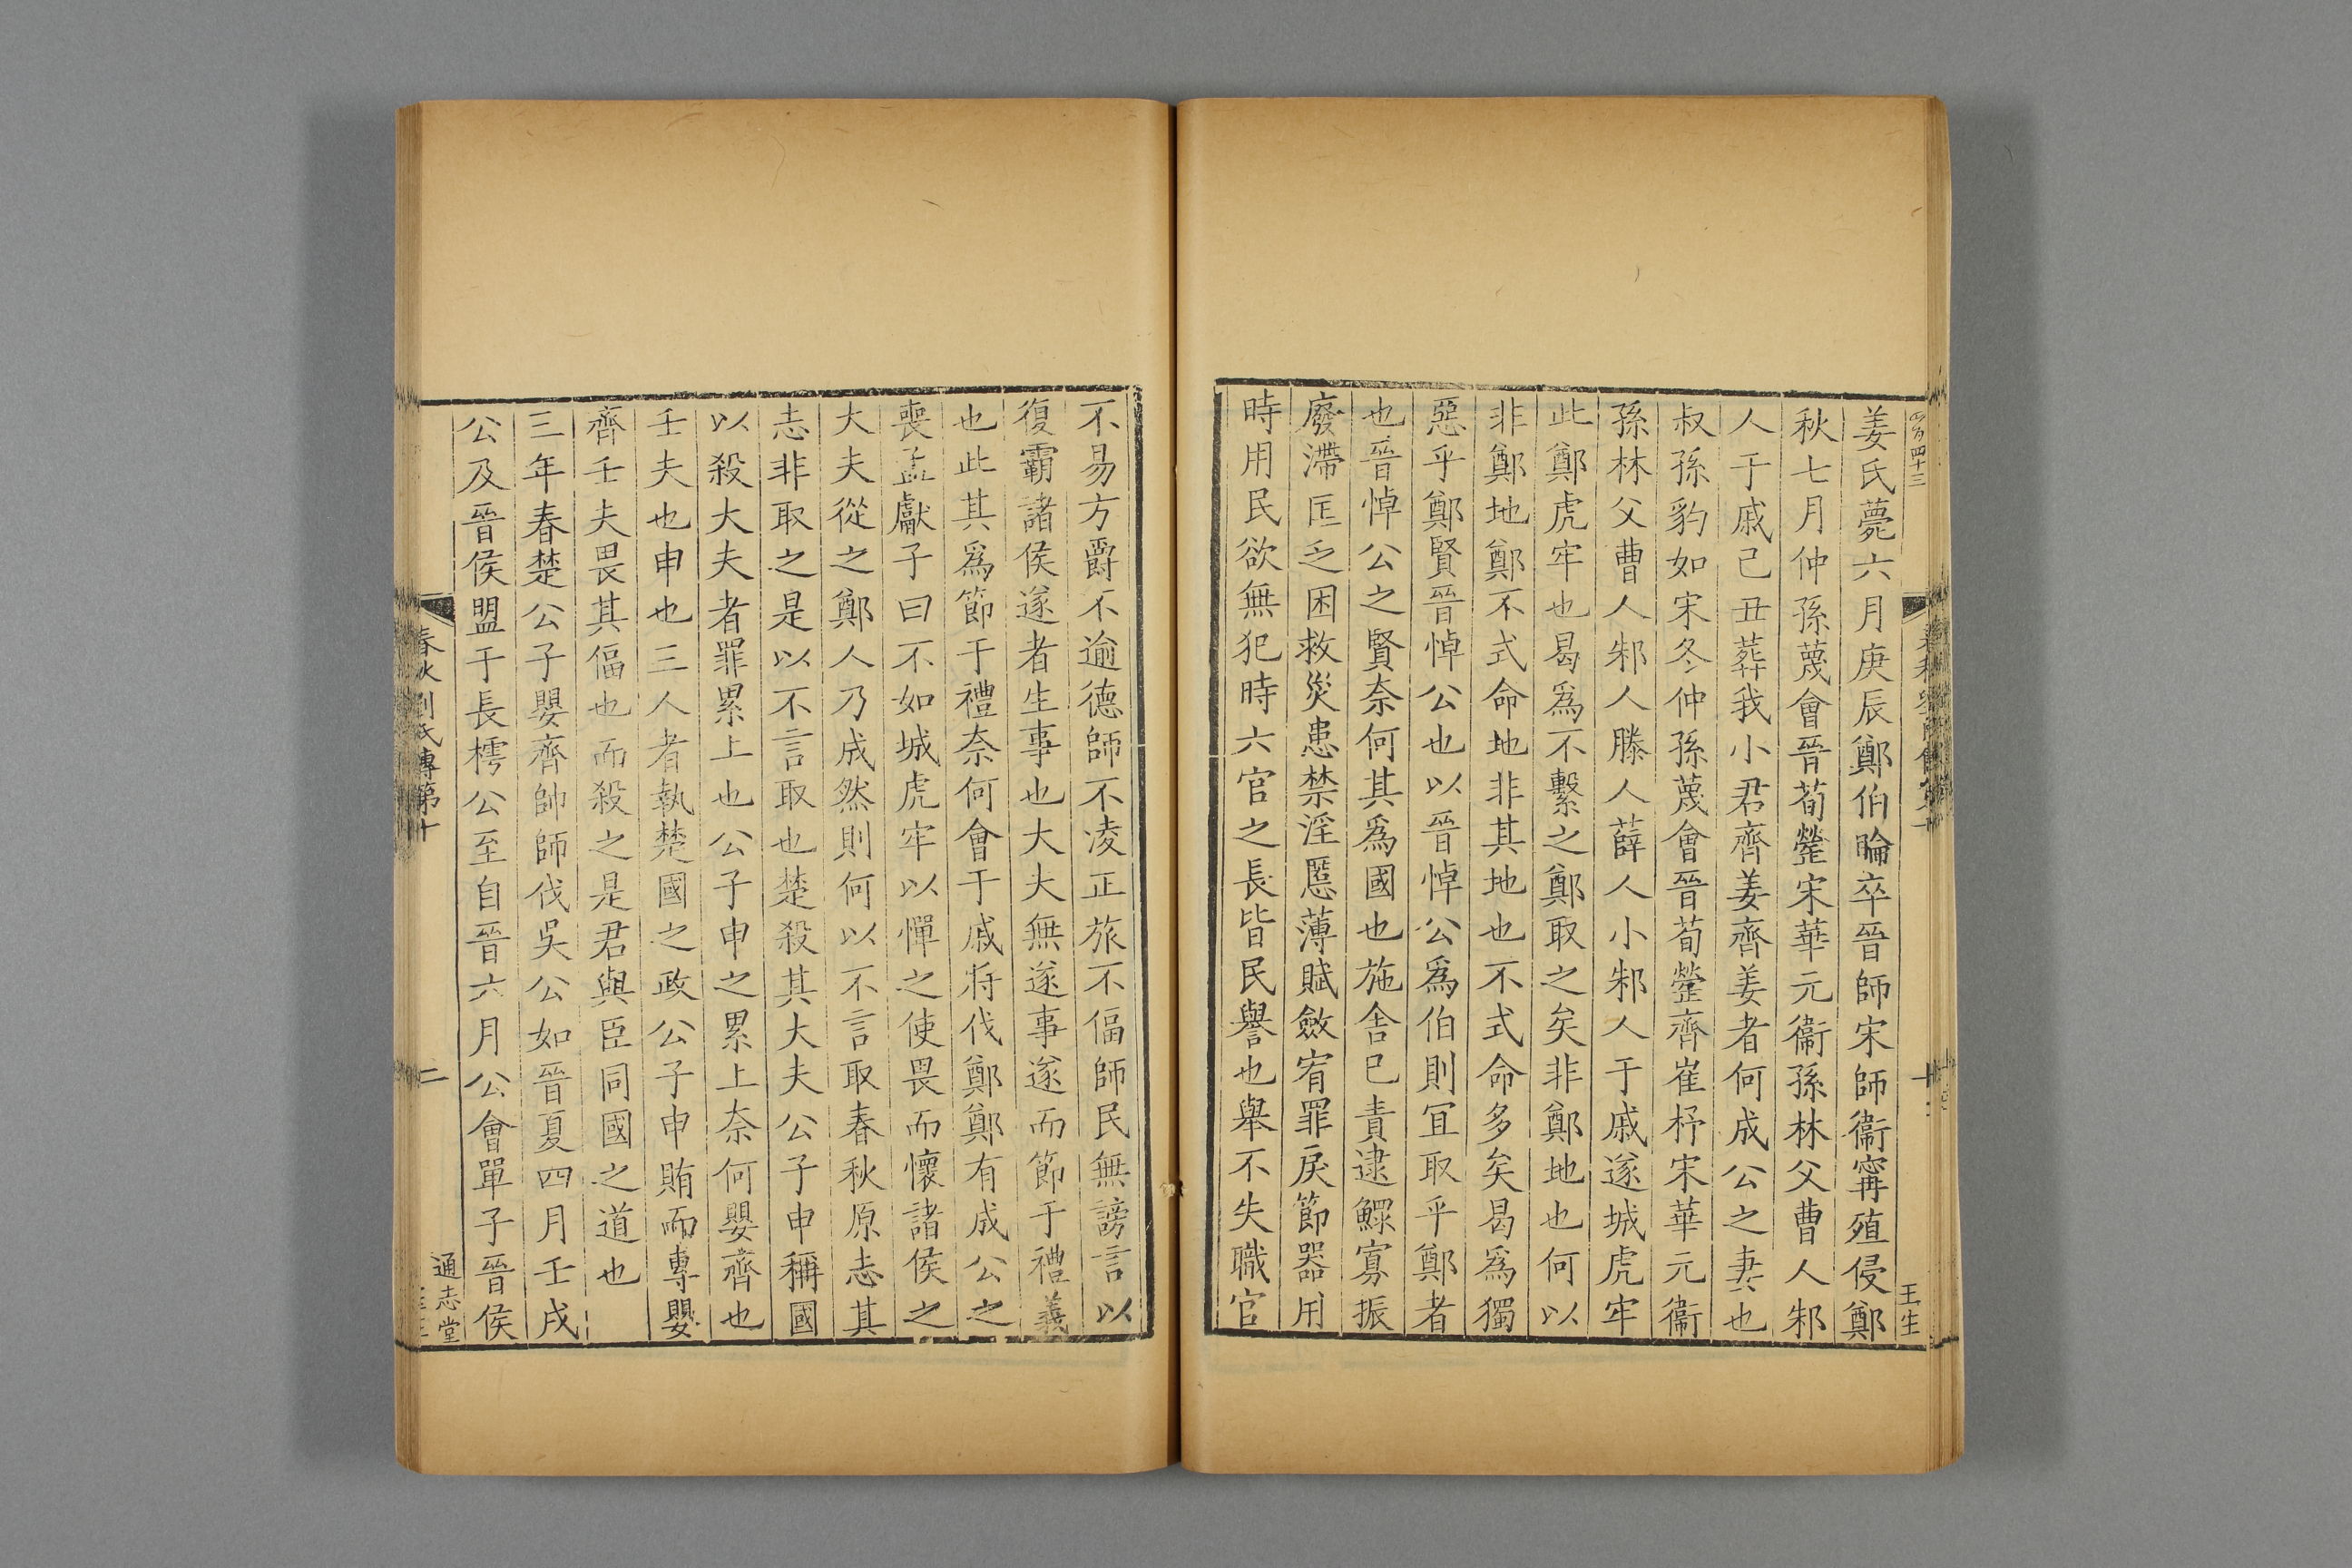 姜氏薨六月庚辰鄭伯睔卒晉師宋師衞甯殖侵鄭
秋七月仲孫蔑會晉荀罃宋華元衞孫林父曹人邾
人于戚己丑葬我小君齊姜齊姜者何成公之妻也
叔孫豹如宋冬仲孫蔑會晉荀罃齊崔杼宋華元衞
孫林父曹人邾人滕人薛人小邾人于戚遂城虎牢
此鄭虎牢也曷爲不繫之鄭取之矣非鄭地也何以
非鄭地鄭不式命地非其地也不式命多矣曷爲獨
惡乎鄭賢晉悼公也以晉悼公爲伯則冝取乎鄭者
也晉悼公之賢柰何其爲國也施舎已責逮鰥寡振
廢滯匡乏困救災患禁淫慝薄賦斂宥罪戾節器用
時用民欲無犯時六官之長皆民譽也舉不失職官
王生
不易方爵不逾德師不凌正旅不偪師民無謗言以
復霸諸侯遂者生事也大夫無遂事遂而節于禮義
也此其爲節于禮柰何會于戚將伐鄭鄭有成公之
喪孟獻子曰不如城虎牢以憚之使畏而懷諸侯之
大夫從之鄭人乃成然則何以不言取春秋原志其
志非取之是以不言取也楚殺其大夫公子申稱國
以殺大夫者罪累上也公子申之累上柰何嬰齊也
壬夫也申也三人者執楚國之政公子申賄而專嬰
齊壬夫畏其偪也而殺之是君與臣同國之道也
三年春楚公子嬰齊帥師伐吳公如晉夏四月壬戌
公及晉侯盟于長樗公至自晉六月公會單子晉侯
春秋劉氏傳第十
二
通志堂